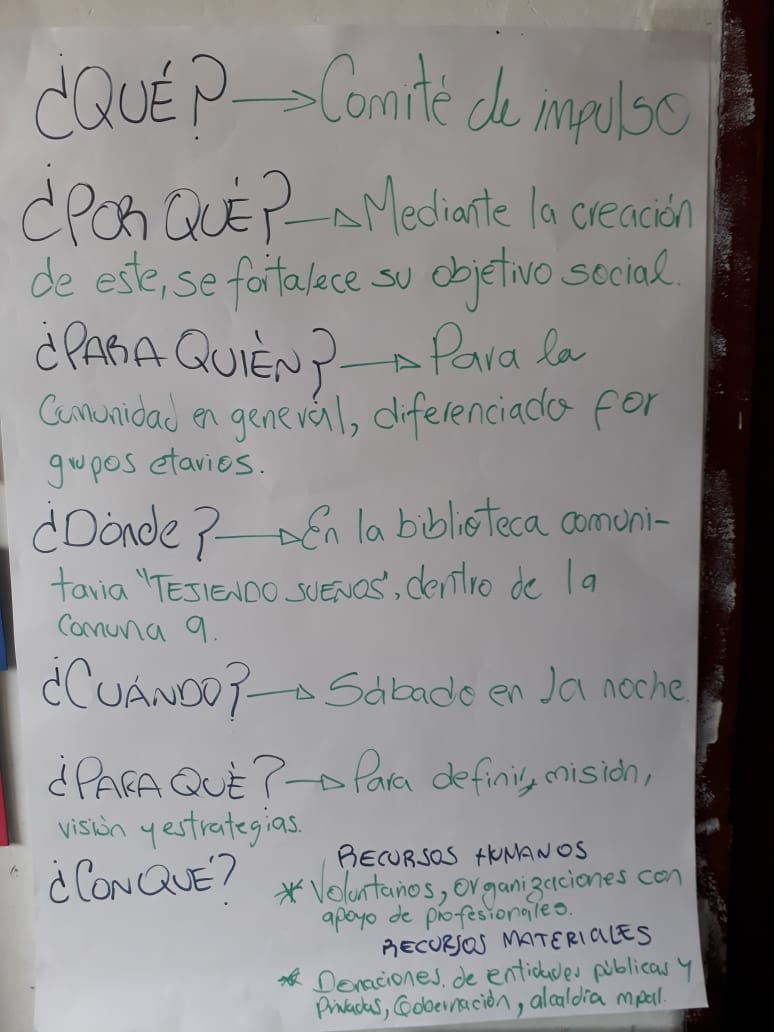 ¿QUÉ? → Comité de impulso
¿POR QUÉ? → Mediante la creación
de este, se fortalece su objetivo social.
¿PARA QUIÉN? → Para la
Comunidad en general, diferenciado por
grupos etarios.
¿Dónde? → En la biblioteca comuni-
taria "TESIENDO SUEÑOS", dentro de la
Comuna 9.
¿CUÁNDO? → Sábado en la noche.
¿PARA QUÉ? → Para definir, misión,
visión y estrategias.
¿CON QUÉ?
RECURSOS HUMANOS
* Voluntarios, organizaciones con
apoyo de profesionales.
RECURSOS MATERIALES
* Donaciones. de entidades públicas y
Privadas, Gobernación, alcaldía mpal.